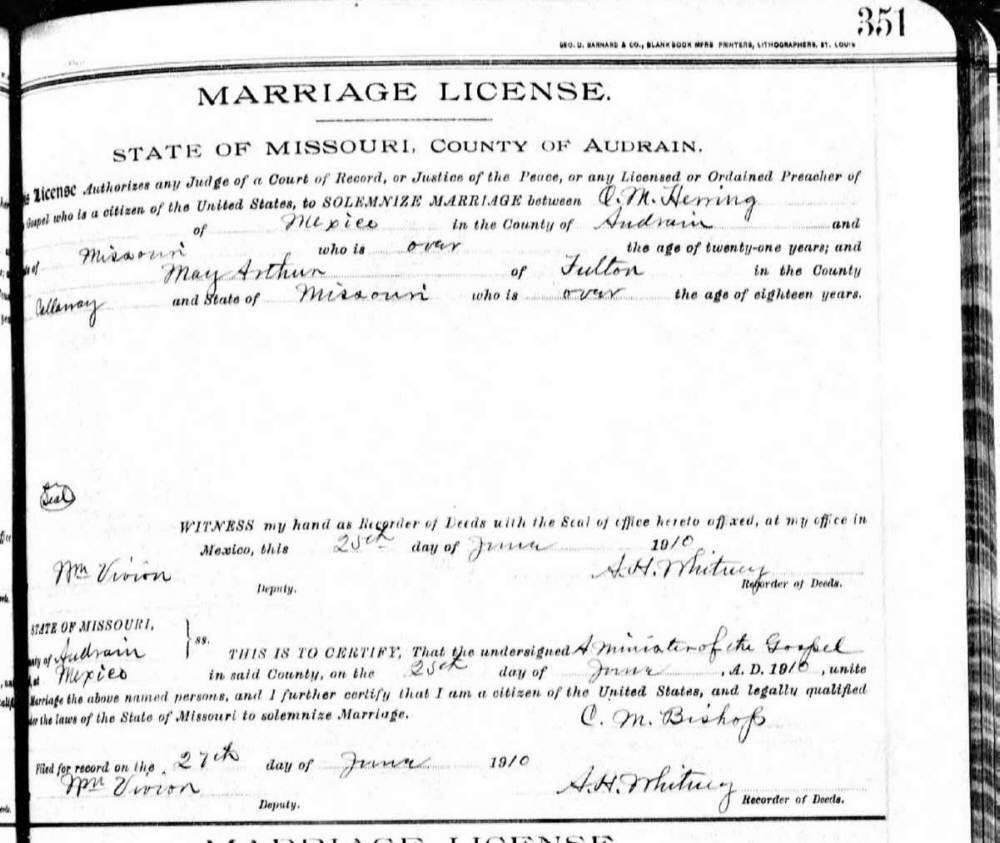 351
GEO. D. BARNARD & CO., BLANK BOOK MFRS PRINTERS, LITHOGRAPHERS, ST. LOUIS
MARRIAGE LICENSE.
STATE OF MISSOURI, COUNTY OF AUDRAIN.
License Authorizes any Judge of a Court of Record, or Justice of the Peace, or any Licensed or Ordained Preacher of
Gospel who is a citizen of the United States, to SOLEMNIZE MARRIAGE between C. M. Herring
of Mexico in the County of Audrain and
of Missouri who is over the age of twenty-one years; and
May Arthur of Fulton in the County
Callaway and State of Missouri who is over the age of eighteen years.
Seal
WITNESS my hand as Recorder of Deeds with the Seal of office hereto affixed, at my office in
Mexico, this 25th day of June 1910
Wm Vivion Deputy. A. H. Whitney Recorder of Deeds.
STATE OF MISSOURI,
of Audrain } ss. THIS IS TO CERTIFY, That the undersigned A minister of the Gospel
at Mexico in said County, on the 25th day of June, A. D. 1910, unite
Marriage the above named persons, and I further certify that I am a citizen of the United States, and legally qualified
the laws of the State of Missouri to solemnize Marriage.
C. M. Bishop
Filed for record on the 27th day of June 1910
Wm Vivion Deputy. A. H. Whitney Recorder of Deeds.
MARRIAGE LICENSE